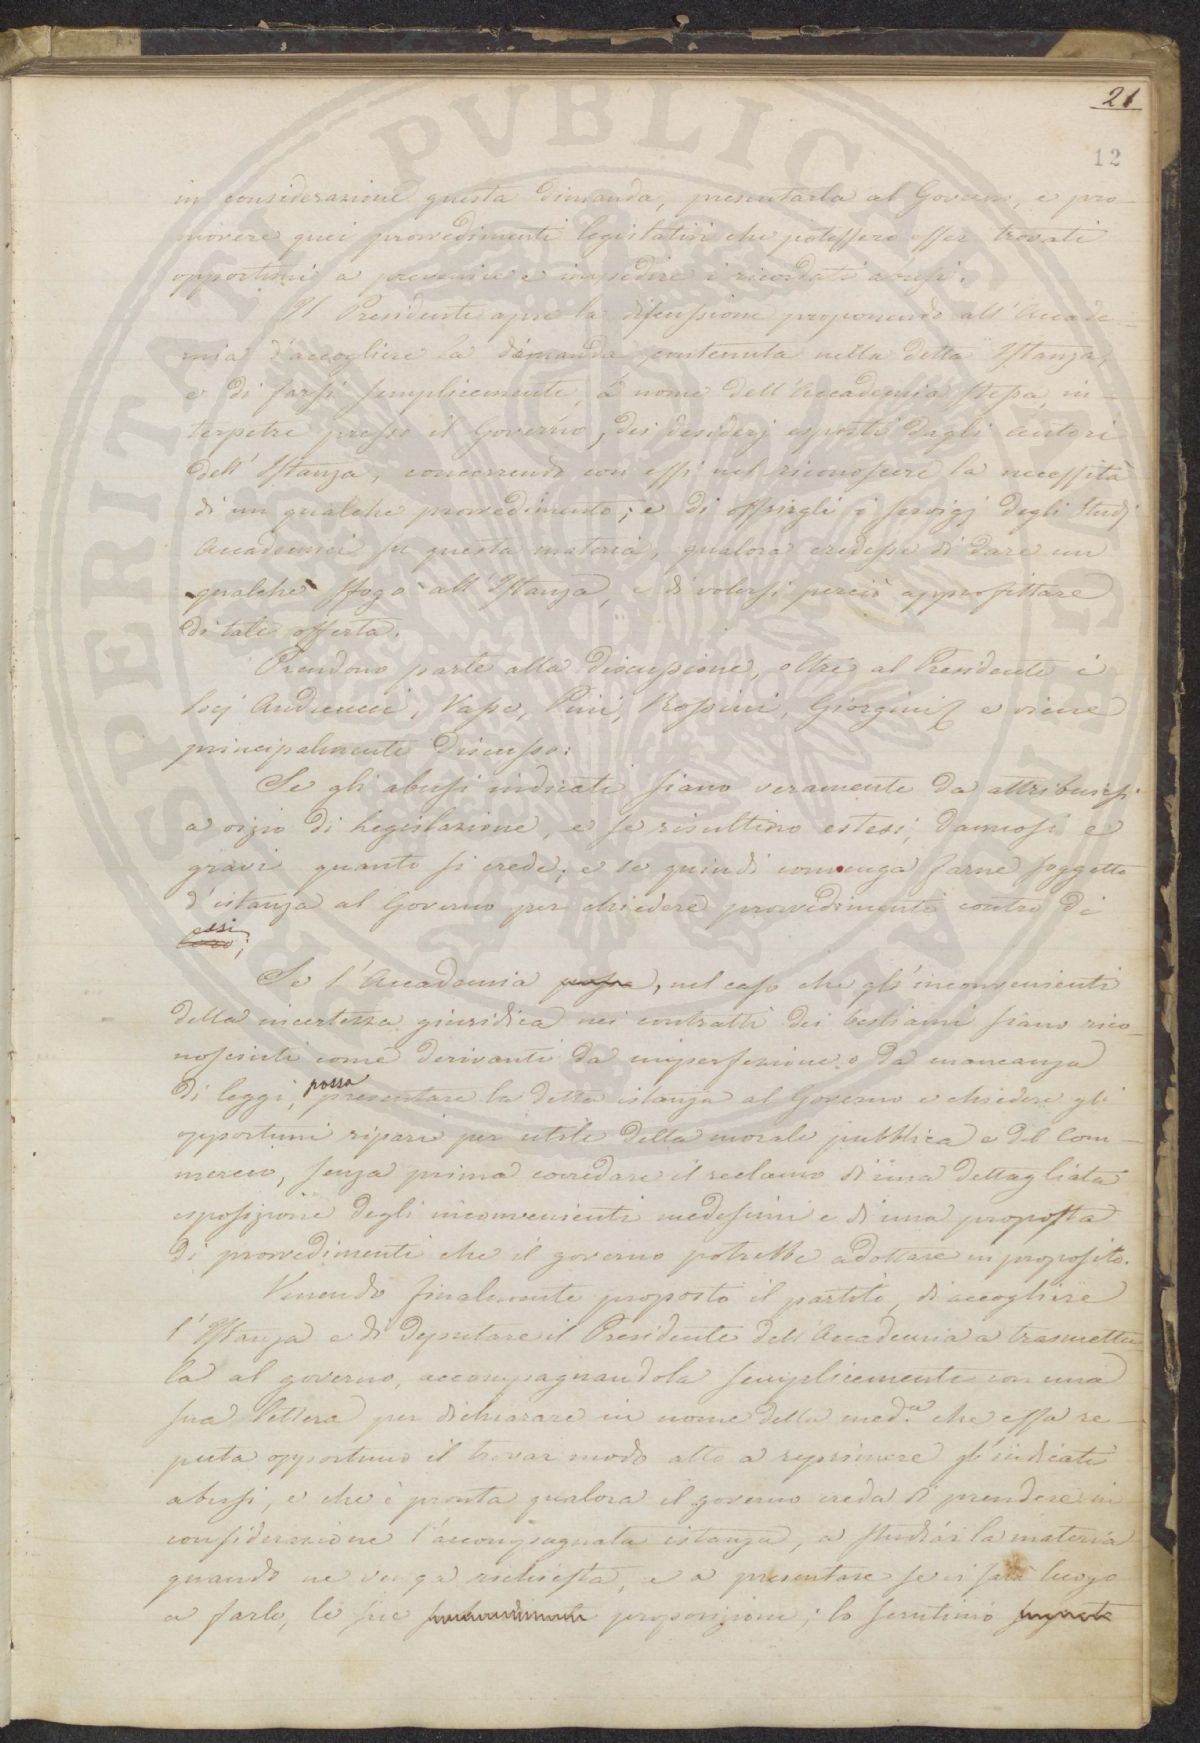 21
12
in considerazione questa dimanda, presentarla al Governo, e pro-
movere quei provvedimenti legislativi che potessero esser trovati
opportuni a prevenire e impedire i ricordati abusi.
Il Presidente apre la discussione proponendo all'Accade-
mia d'accogliere la dimanda contenuta nella detta Istanza,
e di farsi semplicemente, a nome dell'Accademia stessa, in-
terpetre presso il Governo, dei desiderj esposti dagli autori
dell'Istanza, concorrendo con essi nel riconoscere la necessità
di un qualche provvedimento; e di offrirgli i servigj degli studj
Accademici su questa materia, qualora credesse di dare un
qualche sfogo all'Istanza, e di volersi perciò approfittare
di tale offerta.
Prendono parte alla discussione, oltre al Presidente i
Socj Andreucci, Vaso, Pini, Rossini, Giorgini e viene
principalmente discusso:
Se gli abusi indicati siano veramente da attribuirsi
a vizio di Legislazione, e se risultino estesi, dannosi e
gravi quanto si crede; e se quindi convenga farne soggetto
d'istanza al Governo per chiedere provvedimenti contro di
essi
loro;
Se l'Accademia possa, nel caso che gl'inconvenienti
della incertezza giuridica nei contratti dei bestiami siano rico-
nosciuti come derivanti da imperfezione o da mancanza
di leggi, possa presentare la detta istanza al Governo e chiedere gli
opportuni ripari per utile della morale pubblica e del Com-
mercio, senza prima corredare il reclamo di una dettagliata
esposizione degli inconvenienti medesimi e di una proposta
di provvedimenti che il governo potrebbe adottare in proposito.
Venendo finalmente proposto il partito, di accogliere
l'Istanza e di deputare il Presidente dell'Accademia a trasmetter-
la al governo, accompagnandola semplicemente con una
sua lettera per dichiarare in nome della med.ma che essa re-
puta opportuno il trovar modo atto a reprimere gl'indicati
abusi, e che è pronta qualora il governo creda di prendere in
considerazione l'accompagnata istanza, a studiar la materia
quando ne venga richiesta, e a presentare se vi sarà luogo
a farlo, le sue proposizioni; lo scrutinio segreto